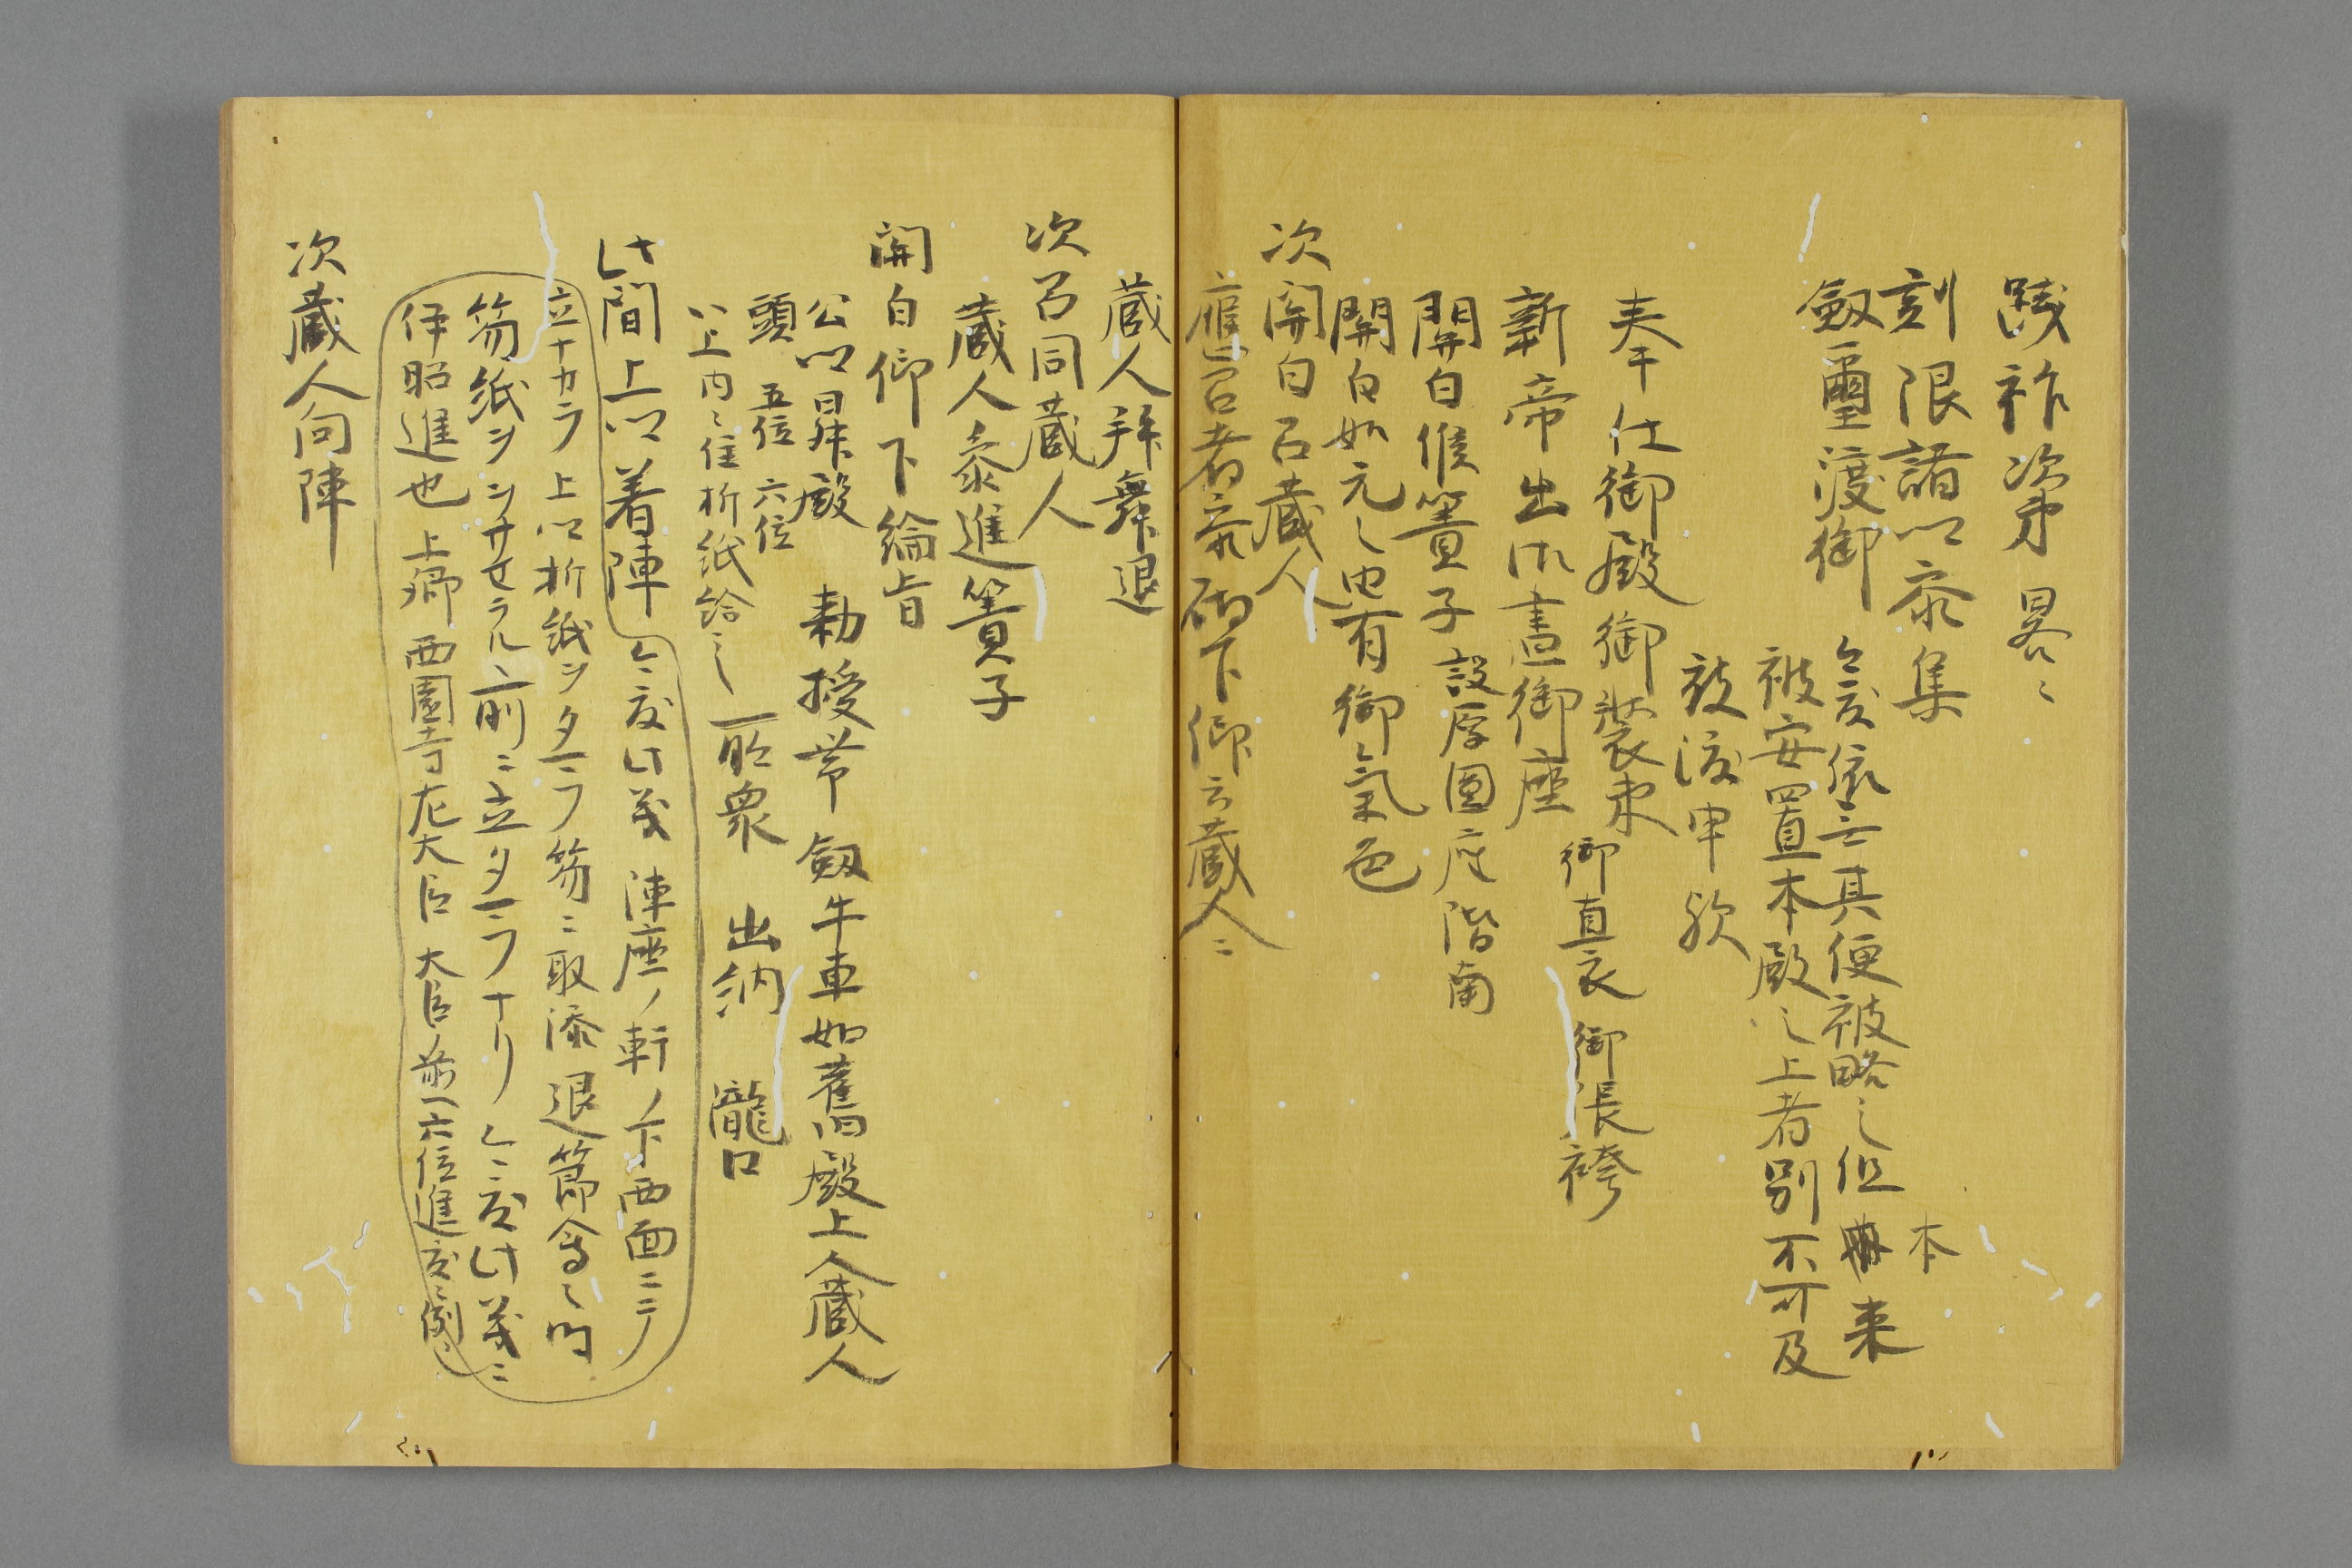 踐祚次第 畧之
刻限諸卿参集
劔璽渡御
今度依無其便被略之但 本来
被安置本殿之上者別不可及
被渡申歟
奉仕御殿御装束 御直衣 御張袴
新帝出御晝御座
関白候簀子 設厚圓座階南
関白如元之由有御氣色
次関白召蔵人
應召者参砌下仰云蔵人ニ
蔵人拜舞退
次召同蔵人
蔵人参進簀子
関白仰下綸旨
公卿昇殿 勅授帯劔牛車如舊殿上人蔵人
頭 五位 六位
以上内々住折紙給之 所衆 出納 瀧口
此間上卿着陣 今度此義陣座ノ軒ノ下西面ニテ
立ナカラ上卿折紙ヲタテ笏ニ取添退節会之時
笏紙ヲヲサセラルヽ前ニ立タテナリ今度此義ニ
伊昭進也 上卿 西園寺左大臣 大臣ノ前六位進度之例也
次蔵人向陣